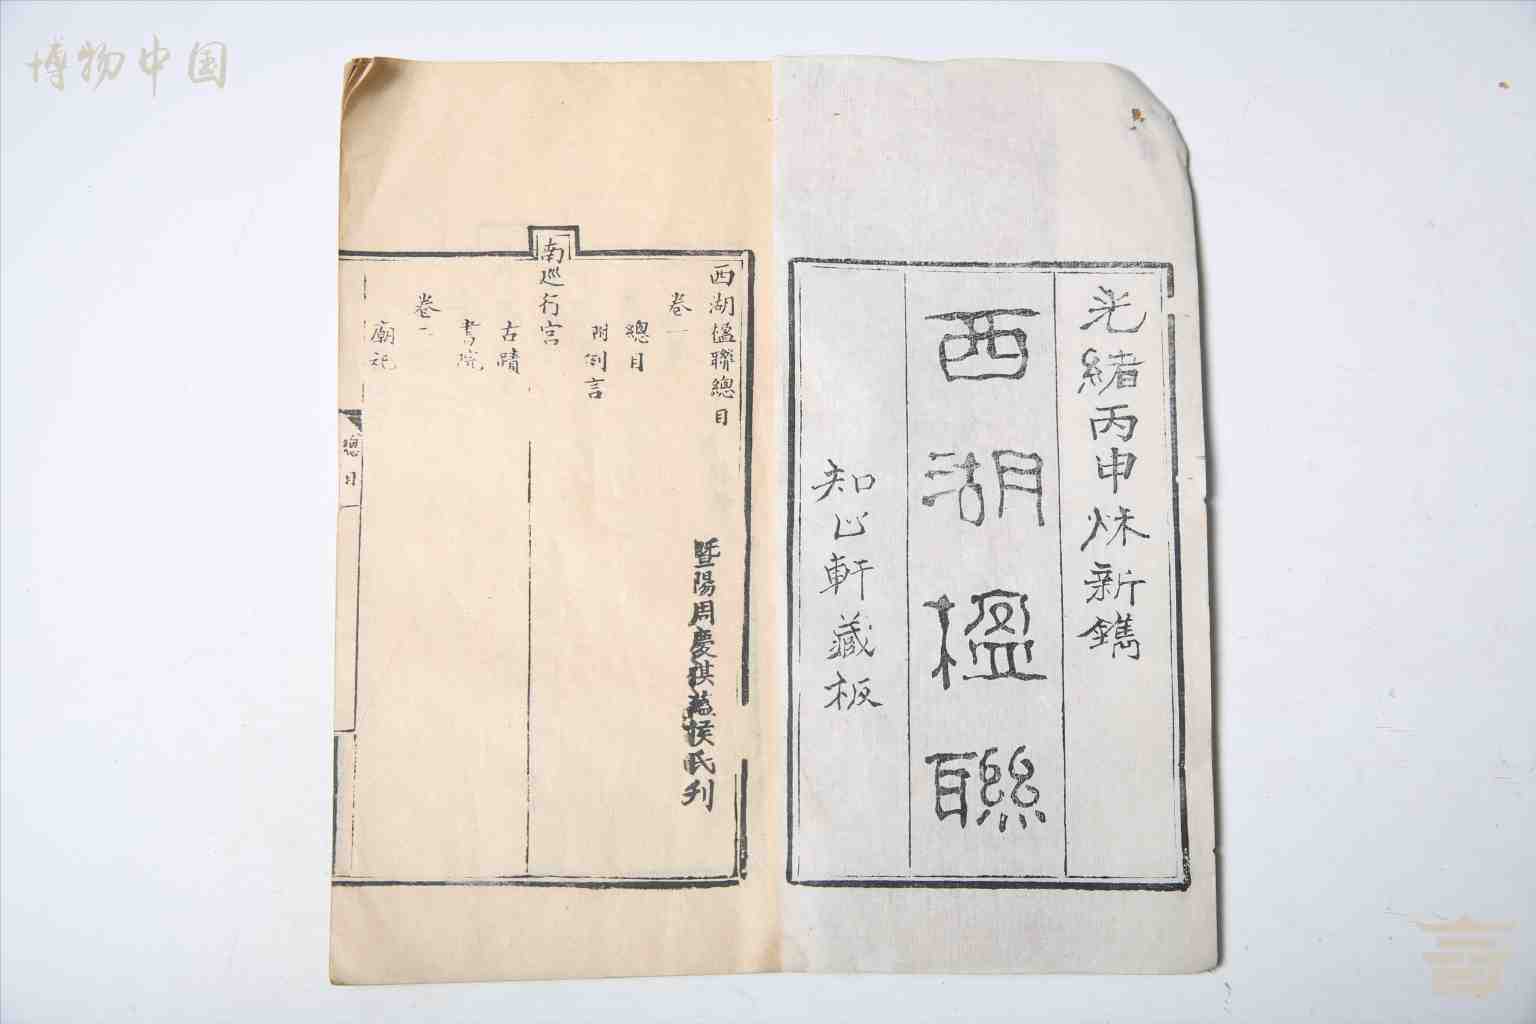 博物中国
光緒丙申秌新鐫
西湖楹聯
知止軒藏板
西湖楹聯總目
暨陽周慶祺藹侯氏刋
卷一
總目
附例言
南巡行宫
古蹟
書院
卷二
廟祀
總目